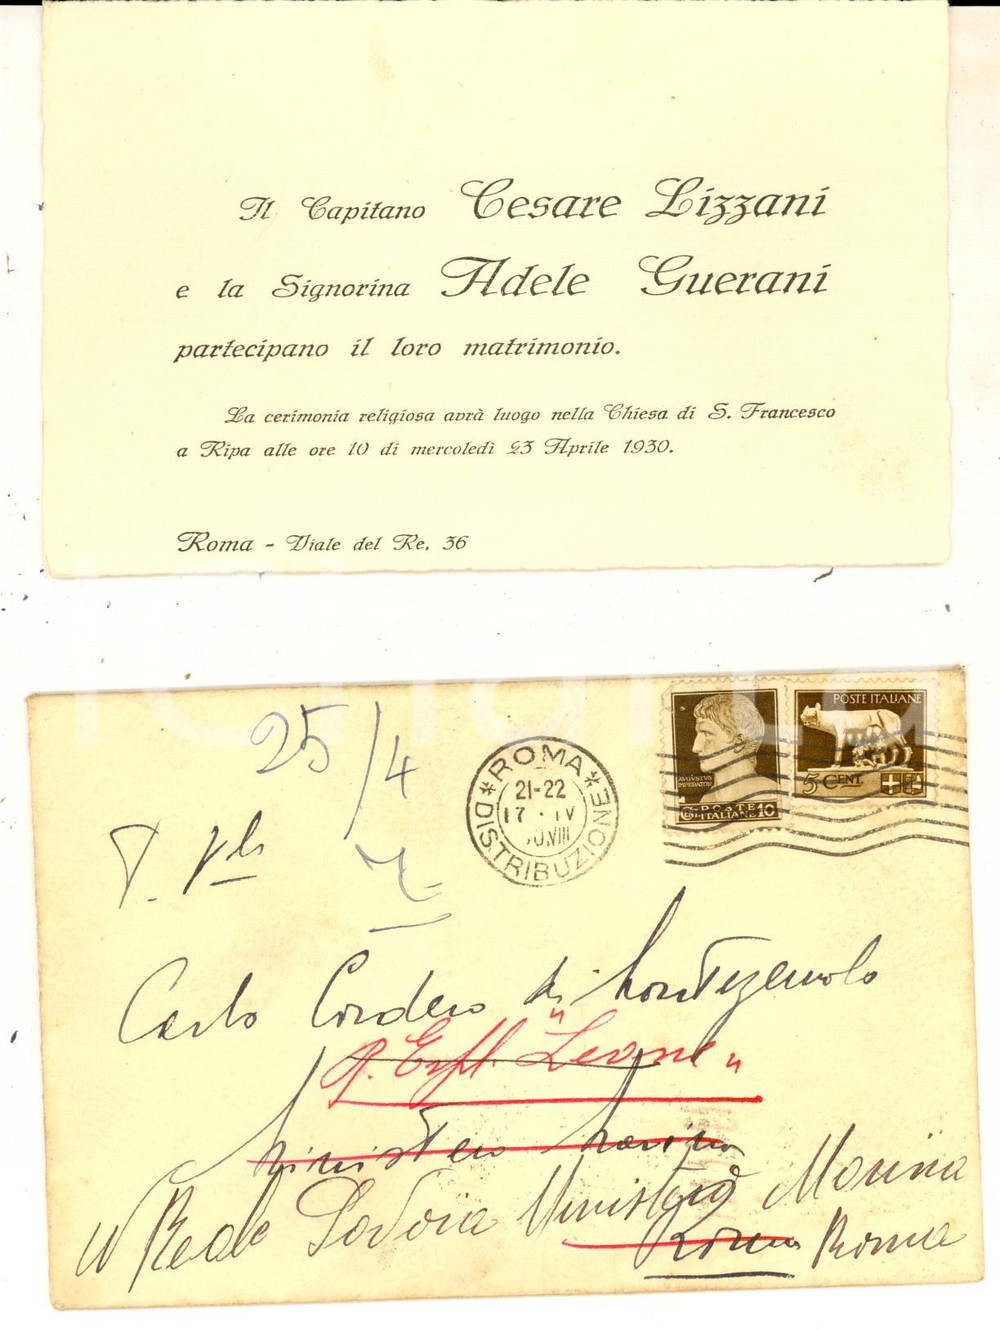 Il Capitano Cesare Lizzani
e la Signorina Adele Guerani
partecipano il loro matrimonio.
La cerimonia religiosa avrà luogo nella Chiesa di S. Francesco
a Ripa alle ore 10 di mercoledì 23 Aprile 1930.
Roma - Viale del Re, 36
25/4
ROMA
21-22
17 · IV
30.VIII
DISTRIBUZIONE
AVGVSTVS
IMPERATOR
POSTE
ITALIANE 10
POSTE ITALIANE
5 CENT.
Carlo Cordero di Montezemolo
R. Espl. "Leone"
Ministero Marina
Roma
Reale Savoia Ministero Marina
Roma